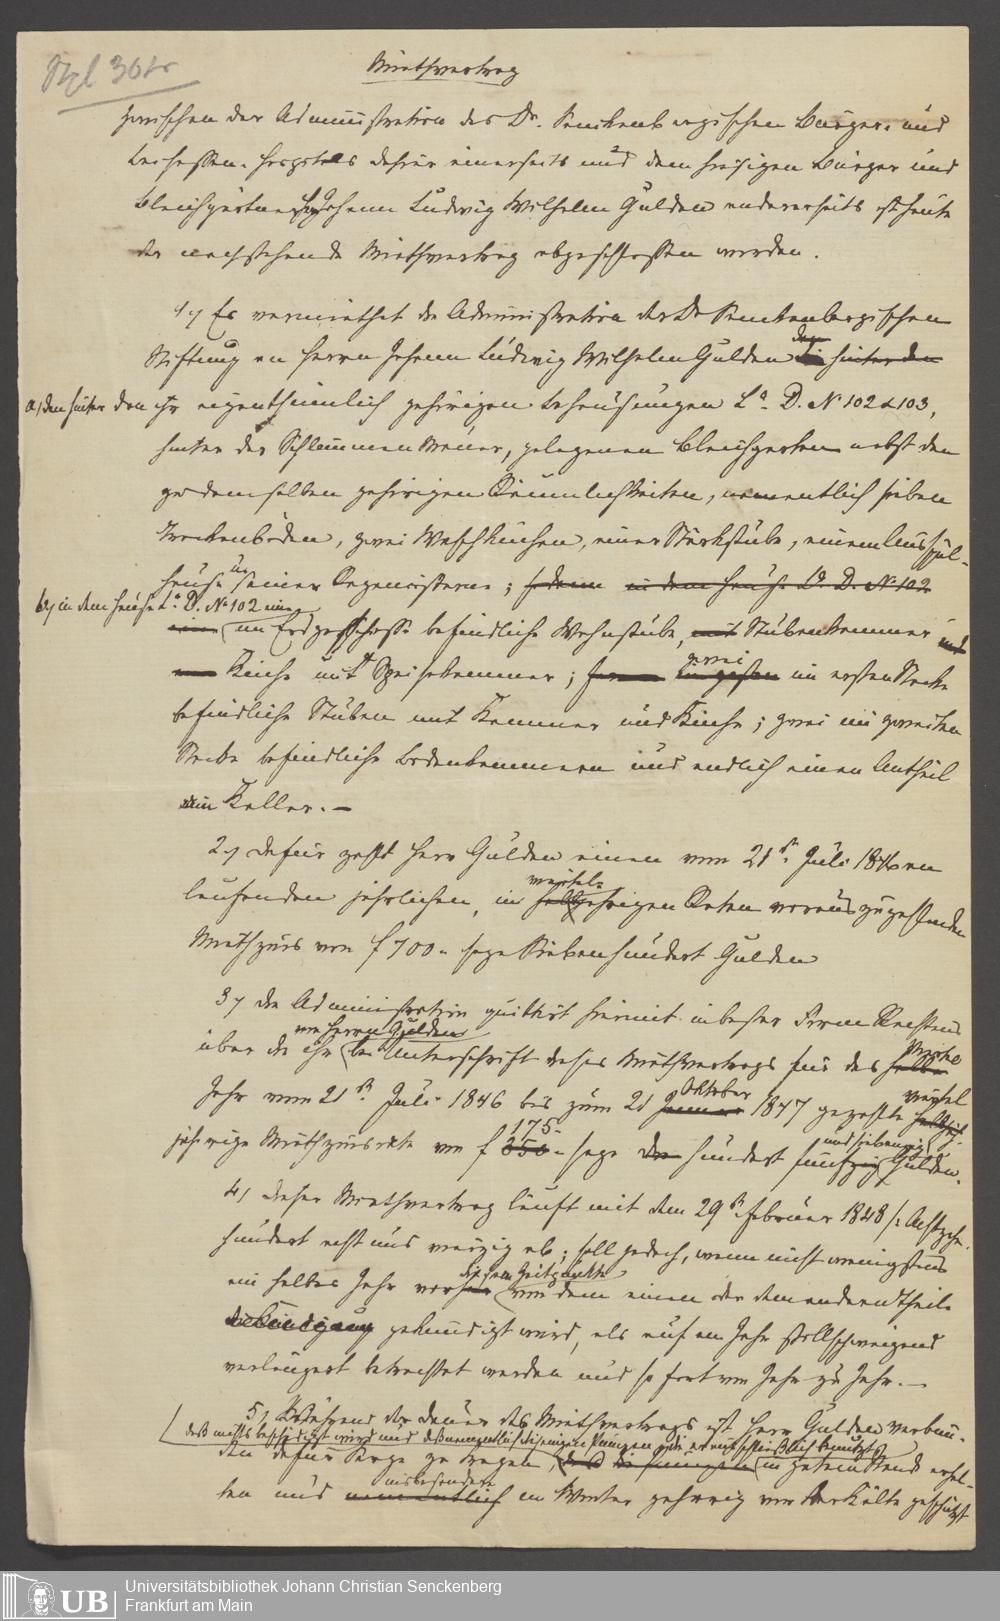 Miethvertrag
Zwischen der Administration des Dr. Senckenbergischen Bürger- und
Beisassen-Hospitals dahier einerseits und dem hiesigen Bürger und
Bleichgärtner Johann Ludwig Wilhelm Gulden andererseits ist heute
der nachstehende Miethvertrag abgeschlossen worden.
1) Es vermiethet die Administration der Dr Senckenbergischen
Stiftung an Herrn Johann Ludwig Wilhelm Gulden den hinter den
a) den hinter den ihr eigenthümlich gehörigen Behausungen La. D. No 102 & 103,
hinter der Schlimmen Mauer, gelegenen Bleichgarten nebst den
zu demselben gehörigen Räumlichkeiten, namentlich sieben
Trockenböden, zwei Waschküchen, einer Stärkstube, einem Ausspül-
hause u. einer Regencisterne; sodann in dem Hause La. D. No 102
b) in dem Hause La. D. No 102 eine
im Erdgeschosse befindliche Wohnstube, mit Stubenkammer und
Küche und Speisekammer; ferner zwei im ersten Stocke
befindliche Stuben mit Kammer und Küche; zwei im zweiten
Stocke befindliche Bodenkammern und endlich einen Antheil
am Keller. —
2) Dafür zahlt Herr Gulden einen vom 21st. Juli 1846 an
laufenden jährlichen, in viertel-
halbjährigen Raten vorauszuzahlenden
Miethzins von f 700.- sage Siebenhundert Gulden
3) Die Administration quittirt hiermit in bester Form Rechtens
von Herrn Gulden
über die ihr bei Unterschrift dieses Miethvertrags für das halbe
Jahr vom 21st. Juli 1846 bis zum 21 Oktober Januar 1847 gezahlte viertel
jährige Miethzinsrate von f 175.- 350.- sage hundert fünf und siebenzig Gulden.
4) Dieser Miethvertrag läuft mit dem 29st. Februar 1848 /: Achtzehn-
hundert acht und vierzig ab; soll jedoch, wenn nicht wenigstens
ein halbes Jahr vor diesem Zeitpunkte von dem einen oder dem anderen Theile
die Kündigung gekündigt wird, als auf ein Jahr stillschweigend
verlängert betrachtet werden und so fort von Jahr zu Jahr. —
5) Während der Dauer des Miethvertrags ist Herr Gulden verbun-
daß nichts beschädigt wird und daß namentlich diejenigen Pumpen, die er ausschließlich benutzt
den dafür Sorge zu tragen, daß die Pumpen in gutem Stand erhal-
insbesondere
ten und namentlich im Winter gehörig vor der Kälte geschützt
Universitätsbibliothek Johann Christian Senckenberg
Frankfurt am Main
UB